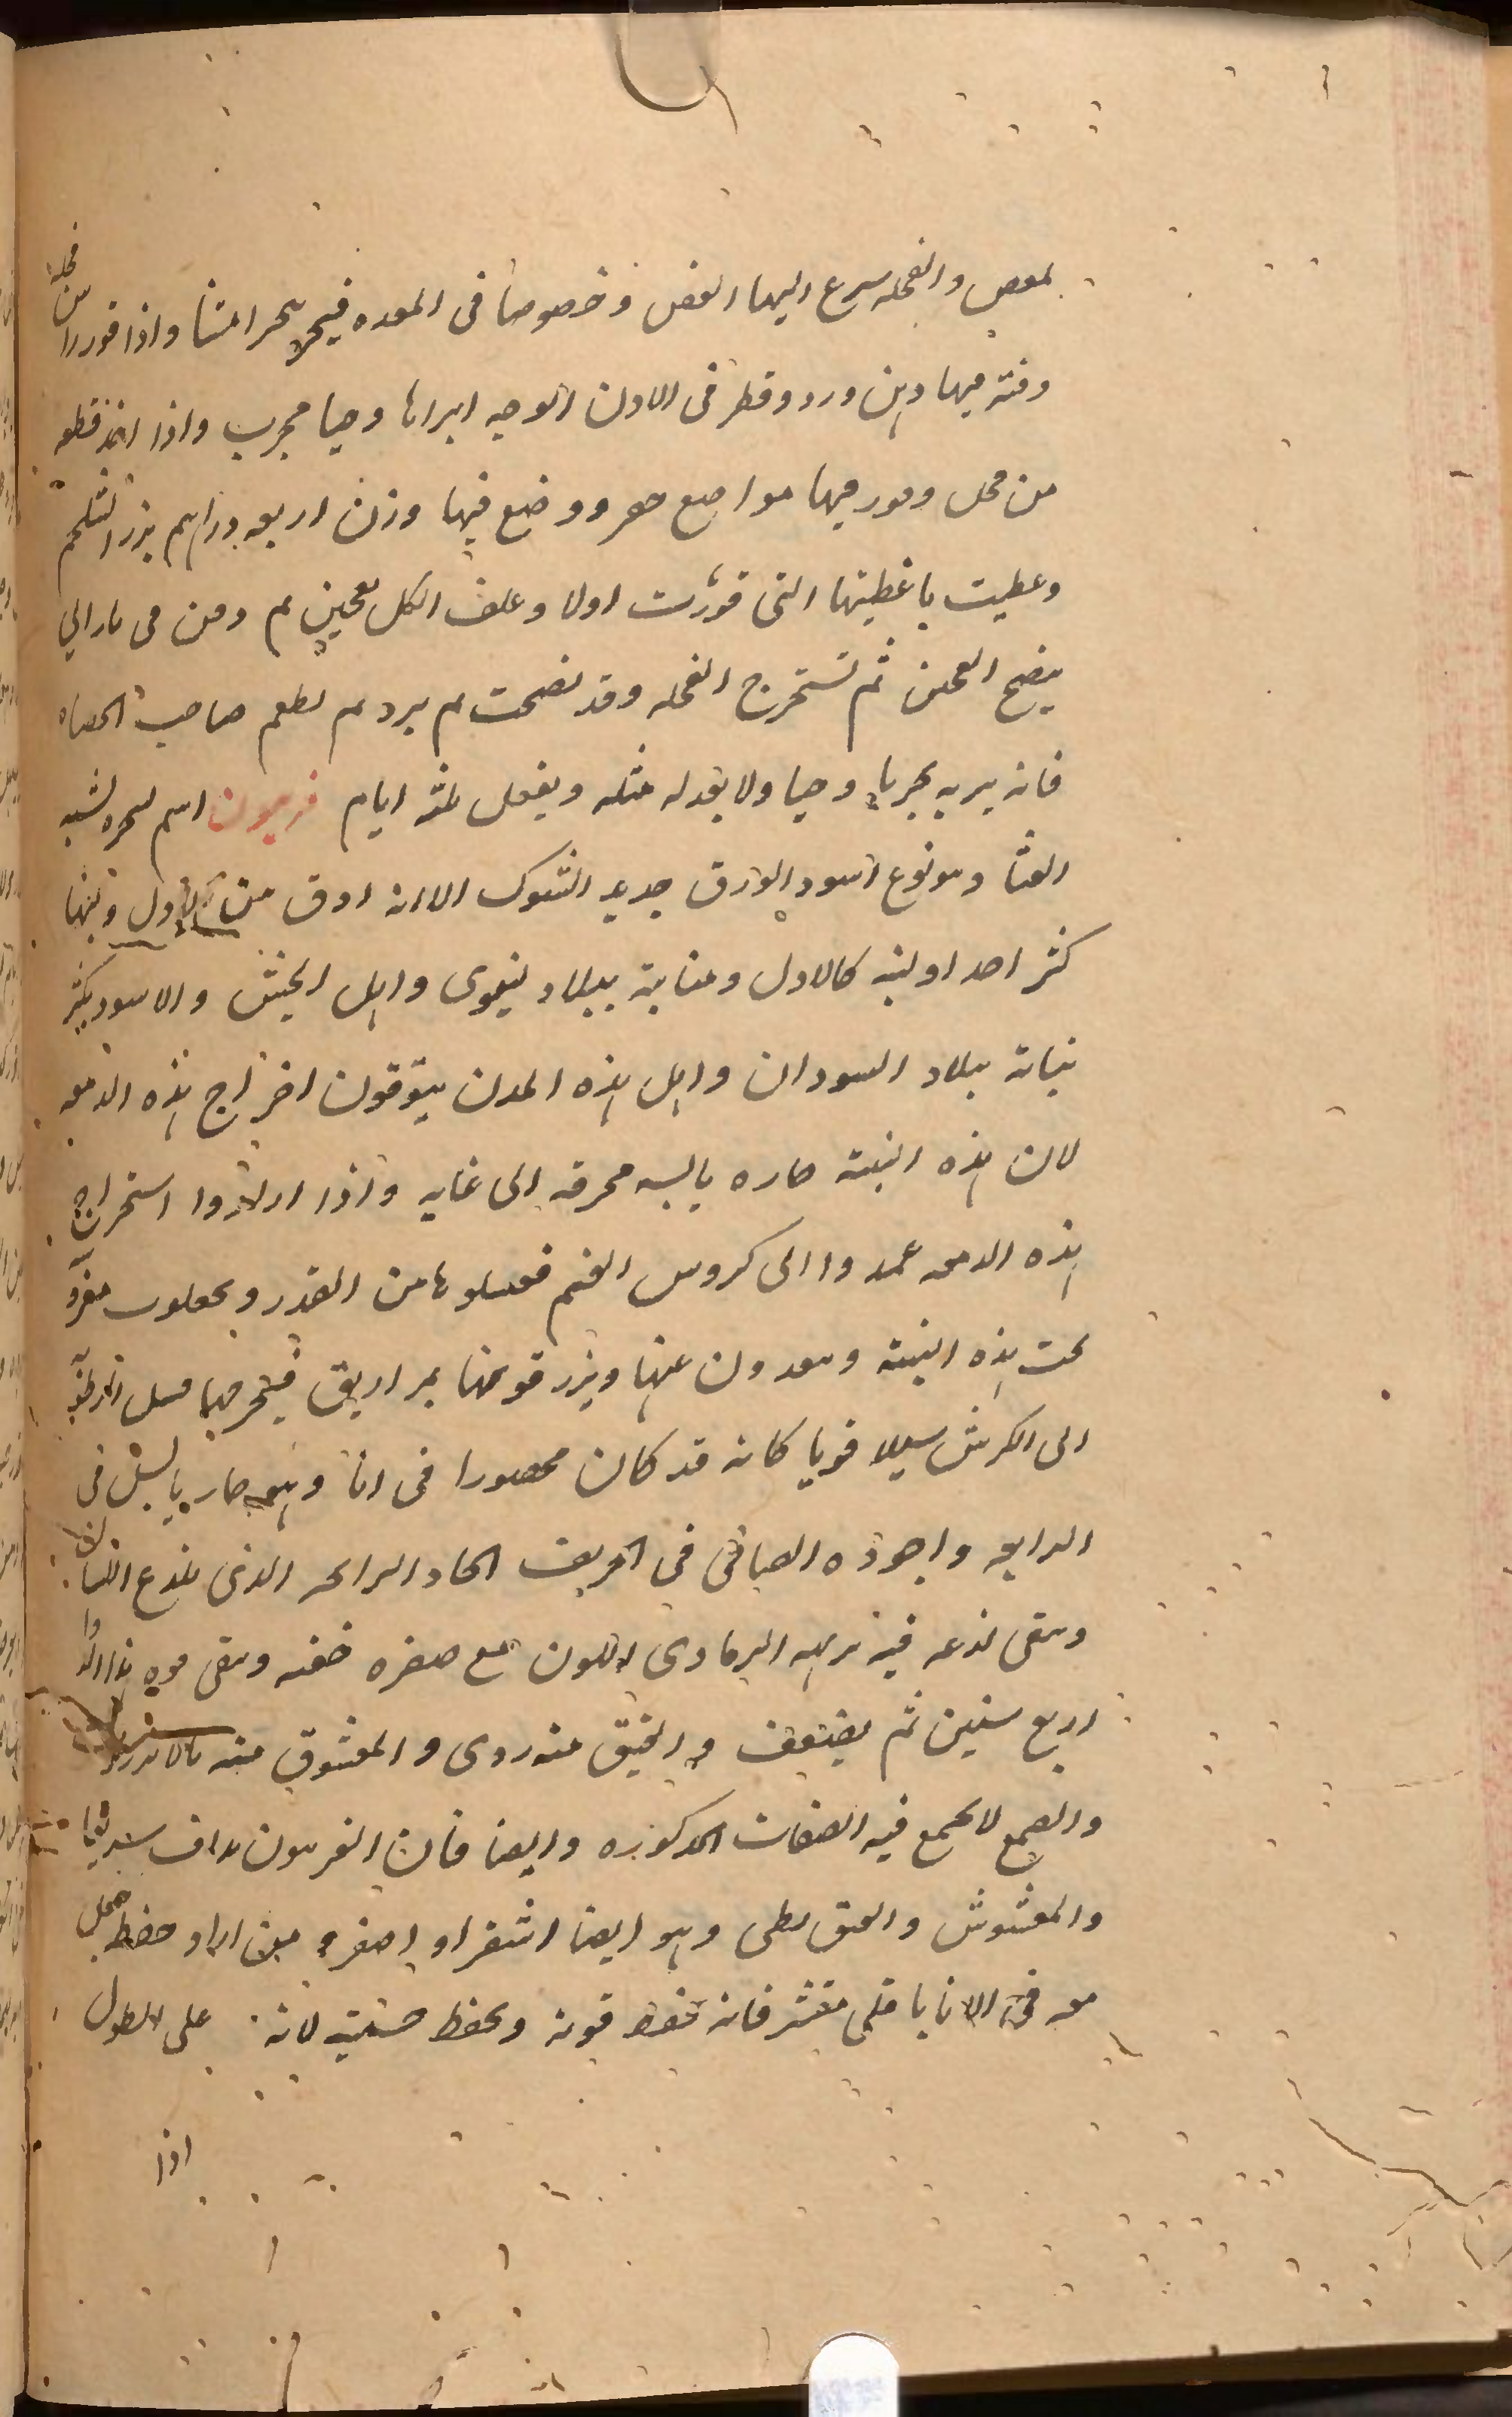 لمعص والفجله سرع اليها العفن وخصوصا فى المعده فيحر بحرا منتنا واذا قور راس فجله
وفتر فيها دهن ورد وقطر فى الاذن الوجعه ابراها وحيا مجرب واذا اخذ قطعه
من فجل وقور فيها مواضع حفر ووضع فيها وزن اربعه دراهم بزر الشلجم
وغطيت باغطيتها التى قورت اولا وغلف الكل بعجين ثم ودفن فى نار الى
ينضج العجين ثم تستخرج الفجله وقد نضجت ثم يبرد ثم يطعم صاحب الحصاه
فانه يبريه مجربا وحيا ولا يعد له مثله ويفعل ثلثه ايام فربيون اسم لشجره تشبه
القثا وهو نوع اسود الورق حديد الشوك الا انه ادق من الاول ومنها
كثر احد اولبنه كالاول ومنابته ببلاد نينوى واهل الحبش والاسود يكثر
نباته ببلاد السودان واهل هذه المدن يتوقون اخراج هذه الدمعه
لان هذه النبته حاره يابسه محرقه الى غايه واذا ارادوا استخراج
هذه الدمعه عمدوا الى كروس الغنم فغسلوها من القذر ويجعلون
تحت هذه النبته ويبعدون عنها ويزرقونها بمزاريق فيخرج منها
الى الكرش سيلا قويا كانه قد كان محصورا فى انا وهو حار يابس فى
الرابعه واجوده الصافى فى الحريف الحاد الرائحه الذى يلذع اللسان
ويبقى لذعه فيه الرمادى اللون مع صفره خفيفه وتبقى قوه هذا الدوا
اربع سنين ثم يضعف والعتيق منه ردى والمغشوق منه بالانزروت
والصمغ لا يجمع فيه الصفات المذكوره وايضا فان الفربيون يداف سريعا
والمغشوش والعتيق بطى وهو ايضا اشقر او اصفر ومن اراد حفظه جعل
معه فى الانا باقلى مقشر فانه يحفظ قوته ويحفظ حسنيته لانه على الطول
اذا